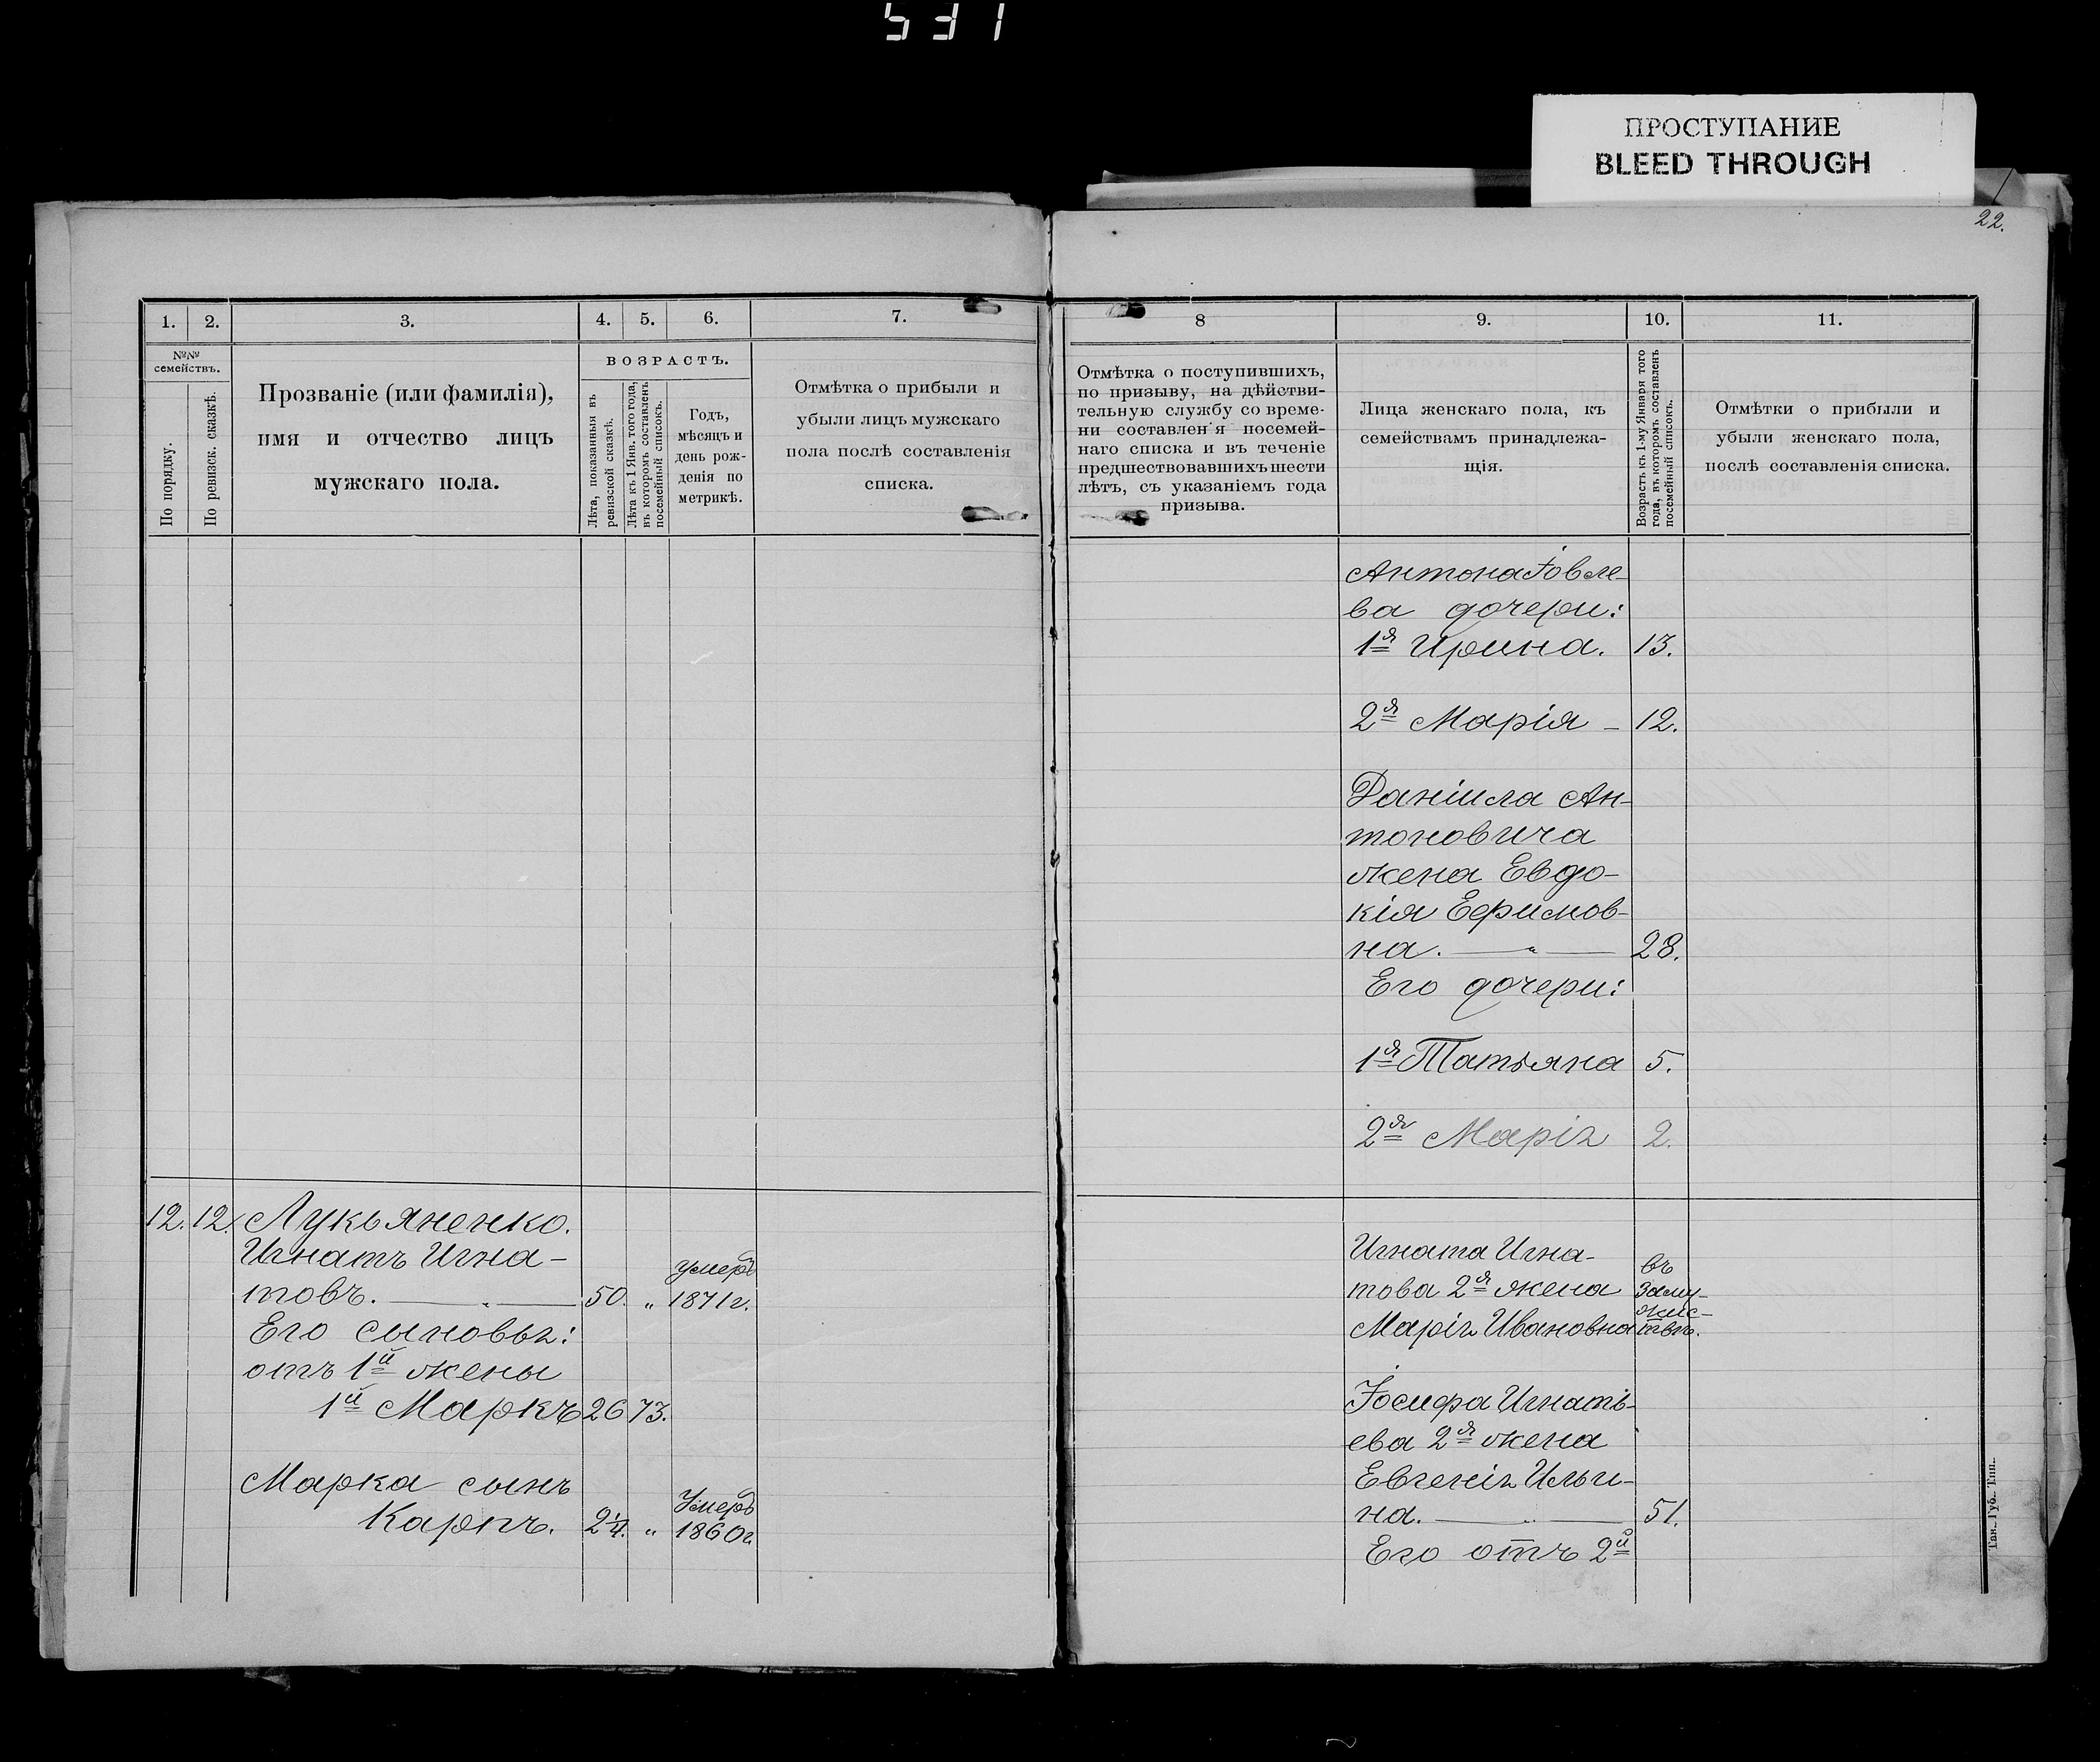 531
ПРОСТУПАНИЕ
BLEED THROUGH
22.
1. 2. 3. 4. 5. 6. 7.
№№ семействъ.
По порядку.
По ревизск. сказкѣ.
Прозваніе (или фамилія),
имя и отчество лицъ
мужскаго пола.
ВОЗРАСТЪ.
Лѣта, показанныя въ
ревизской сказкѣ.
Лѣта къ 1 Янв. того года,
въ которомъ составленъ
посемейный списокъ.
Годъ,
мѣсяцъ и
день рож-
денія по
метрикѣ.
Отмѣтка о прибыли и
убыли лицъ мужскаго
пола послѣ составленія
списка.
12. 12. Лукьяненко.
Игнатъ Игна-
товъ. 50. " умеръ 1871 г.
Его сыновья:
отъ 1й жены
1й Маркъ 26 73.
Марка сынъ
Карпъ. 2¼. " Умеръ 1860 г.
8 9. 10. 11.
Отмѣтка о поступившихъ,
по призыву, на дѣйстви-
тельную службу со време-
ни составлен я посемей-
наго списка и въ теченіе
предшествовавшихъ шести
лѣтъ, съ указаніемъ года
призыва.
Лица женскаго пола, къ
семействамъ принадлежа-
щія.
Возрастъ къ 1-му Января того
года, въ которомъ составленъ
посемейный списокъ.
Отмѣтки о прибыли и
убыли женскаго пола,
послѣ составленія списка.
Антона Іовле-
ва дочери:
1я Ирина. 13.
2я Марія - 12.
Даніила Ан-
тоновича
жена Евдо-
кія Ефимов-
на. " 28.
Его дочери:
1я Татьяна 5.
2я Марія 2.
Игната Игна-
това 2я жена
Марія Ивановна
въ
заму-
жес-
твѣ.
Іосифа Игнать-
ева 2я жена
Евгенія Ильи-
на. 51.
Его отъ 2й
Тав. Губ. Тип.